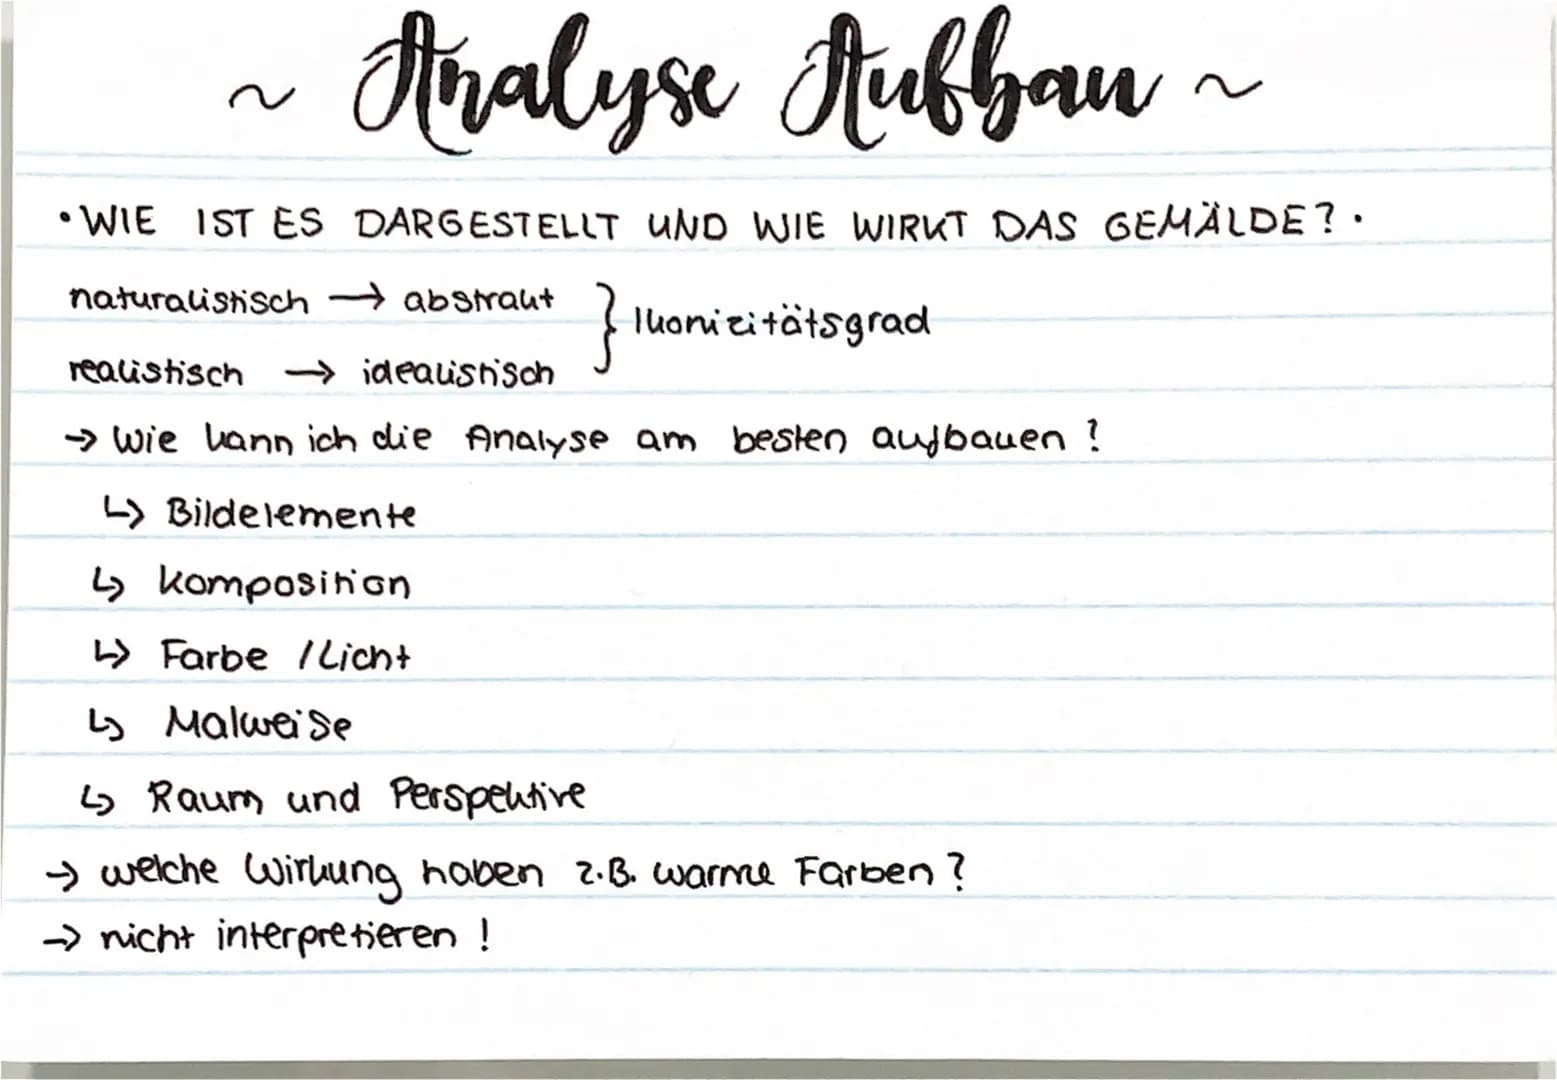 ~ Analyse Aufbau ~
• WIE IST ES DARGESTELLT UND WIE WIRKT DAS GEMÄLDE? •
naturalistisch → abstrakt
} Ikonizitätsgrad
realistisch → idealistisch
→ Wie kann ich die Analyse am besten aufbauen?
↳ Bildelemente
↳ Komposition
↳ Farbe / Licht
↳ Malweise
↳ Raum und Perspektive
→ welche Wirkung haben z.B. warme Farben?
→ nicht interpretieren!